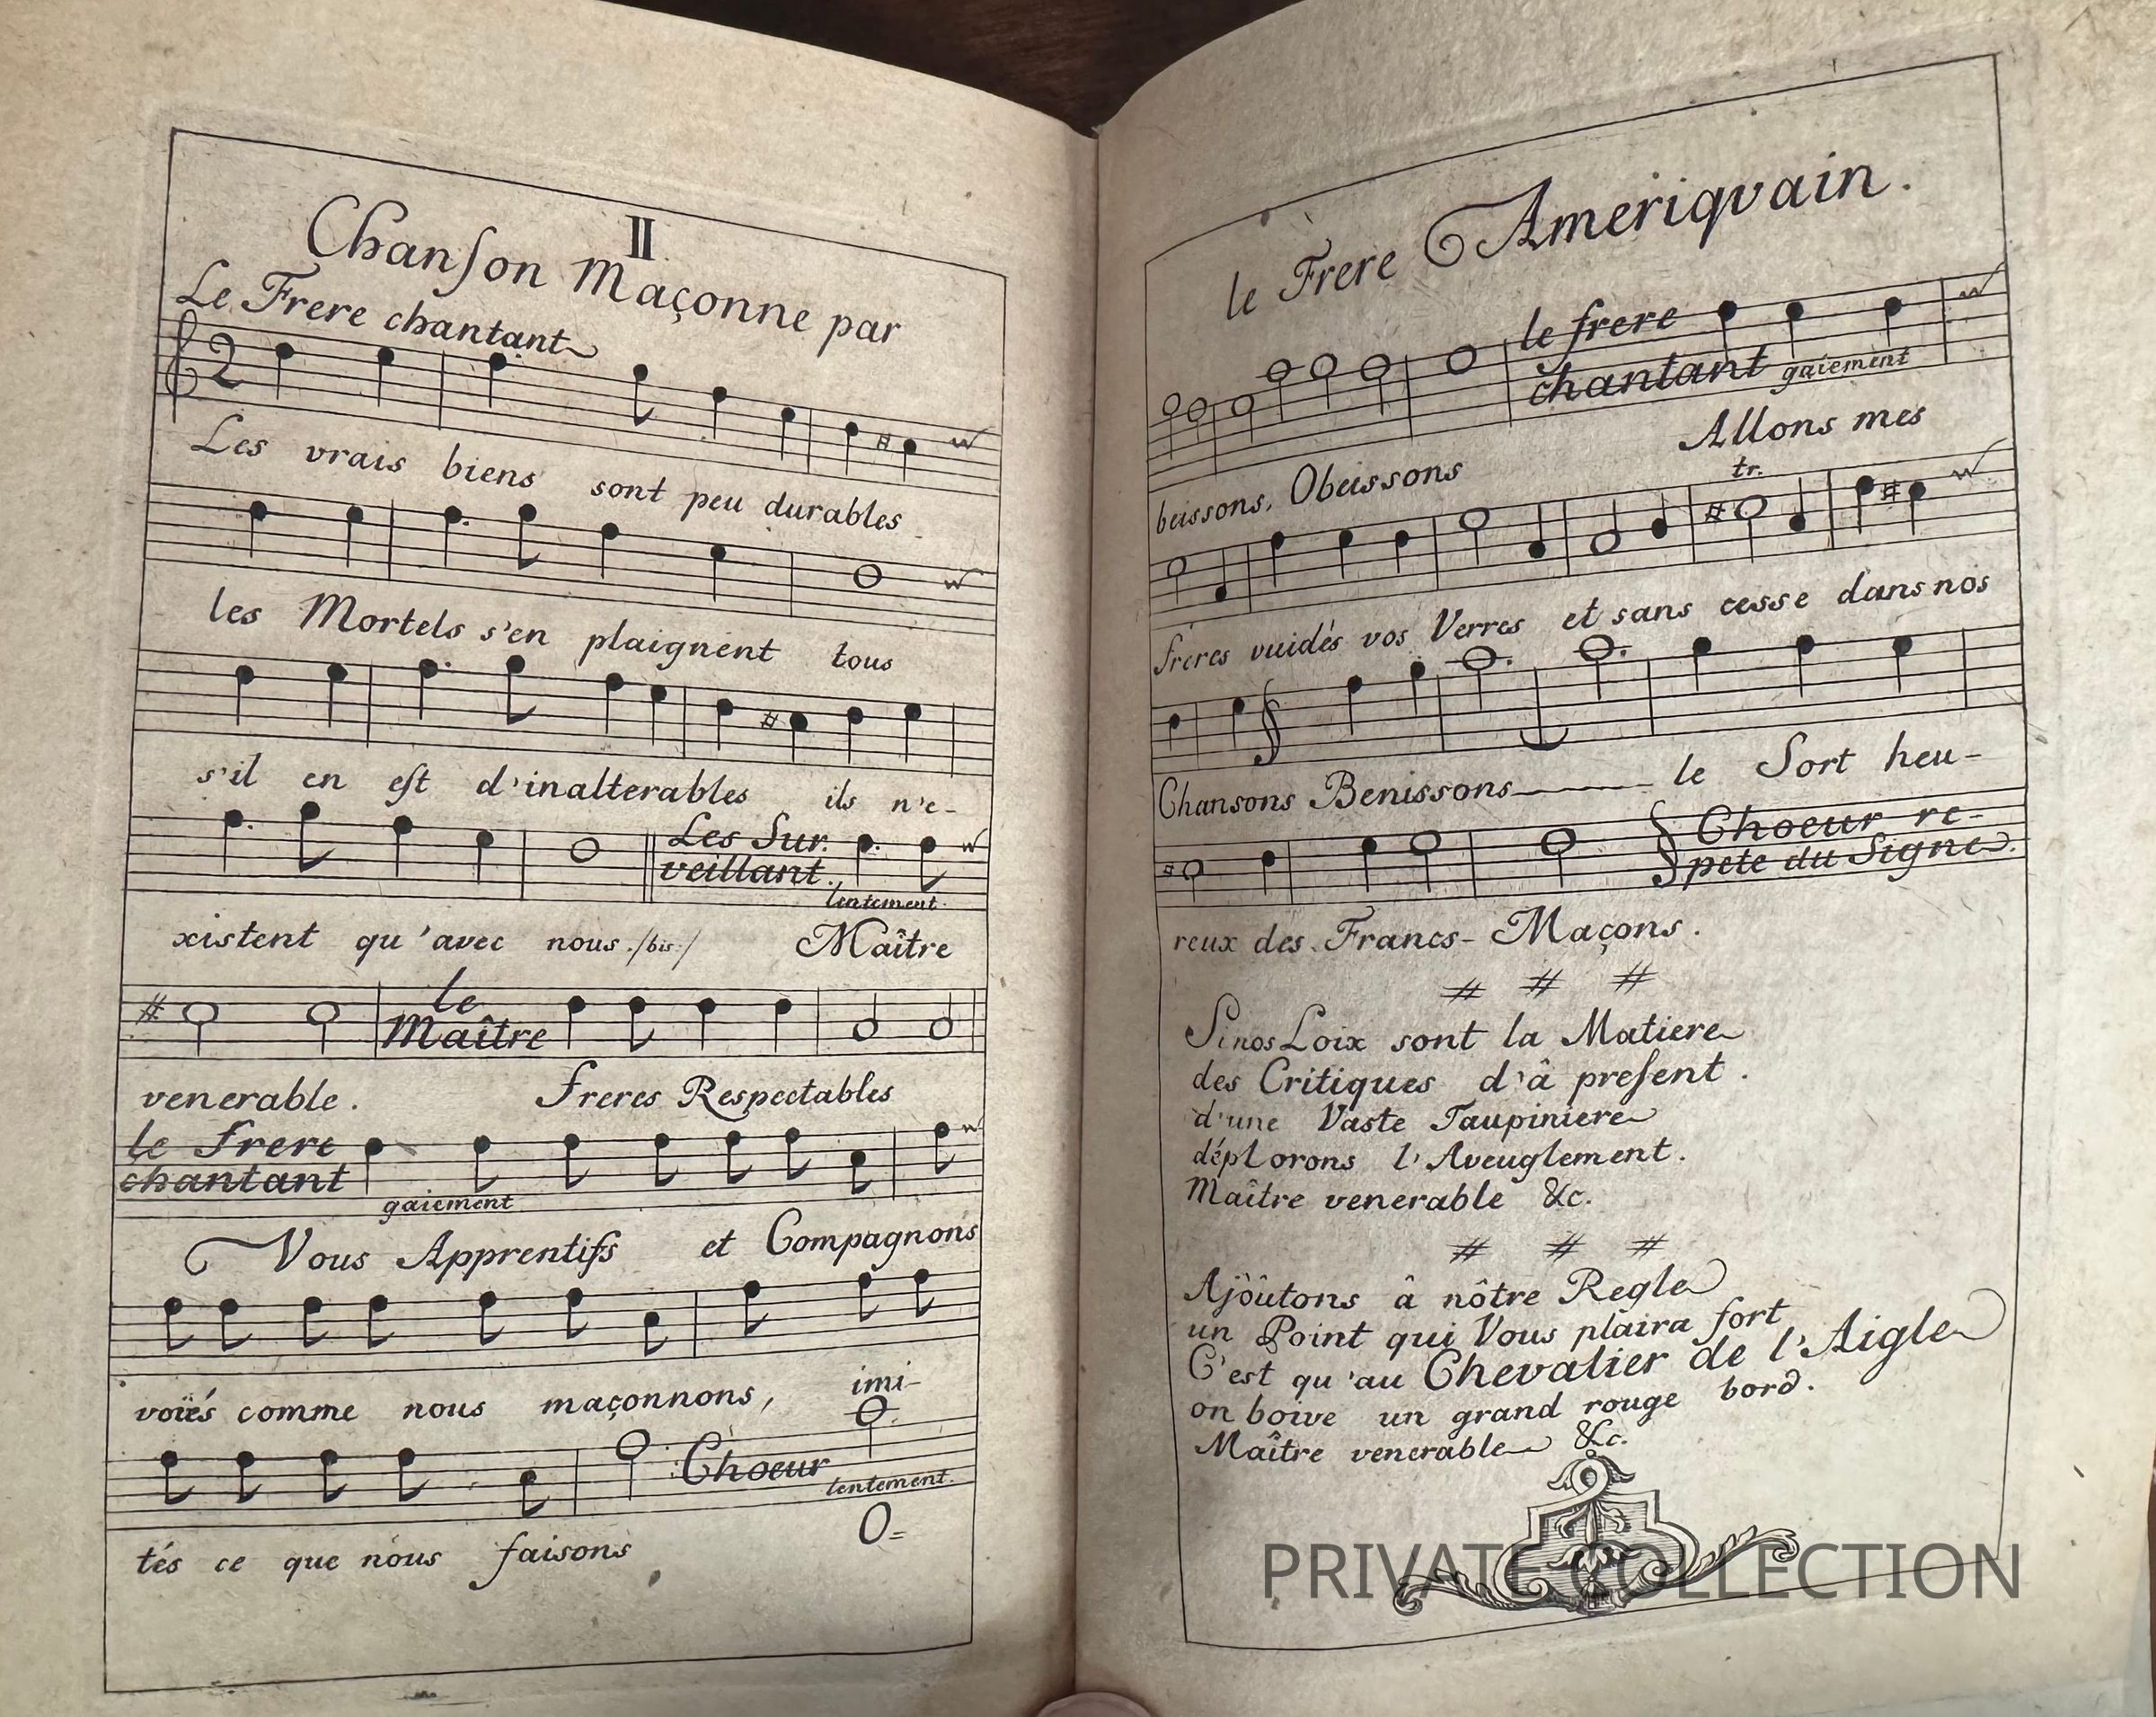 II
Chanſon Maçonne par
Le Frere chantant
2
Les vrais biens sont peu durables
les Mortels s'en plaignent tous
s'il en eſt d'inalterables ils n'e-
Les Sur.
veillant.
lentement.
xistent qu'avec nous./bis/ Maître
le
Maître
venerable. freres Respectables
le frere
chantant
gaiement
Vous Apprentifs et Compagnons
voiés comme nous maçonnons, imi-
Choeur
lentement.
tés ce que nous faisons O=
le Frere Ameriqvain.
le frere
chantant gaiement
beissons, Obeissons Allons mes
tr.
freres vuidés vos Verres et sans cesse dans nos
Chansons Benissons le Sort heu-
Choeur re-
pete du Signe.
reux des Francs-Maçons.
Si nos Loix sont la Matiere
des Critiques d'â preſent.
d'une Vaste Taupiniere
déplorons l'Aveuglement.
Maître venerable &c.
Ajoûtons â nôtre Regle
un Point qui Vous plaira fort
C'est qu'au Chevalier de l'Aigle
on boive un grand rouge bord.
Maître venerable &c.
PRIVATE COLLECTION